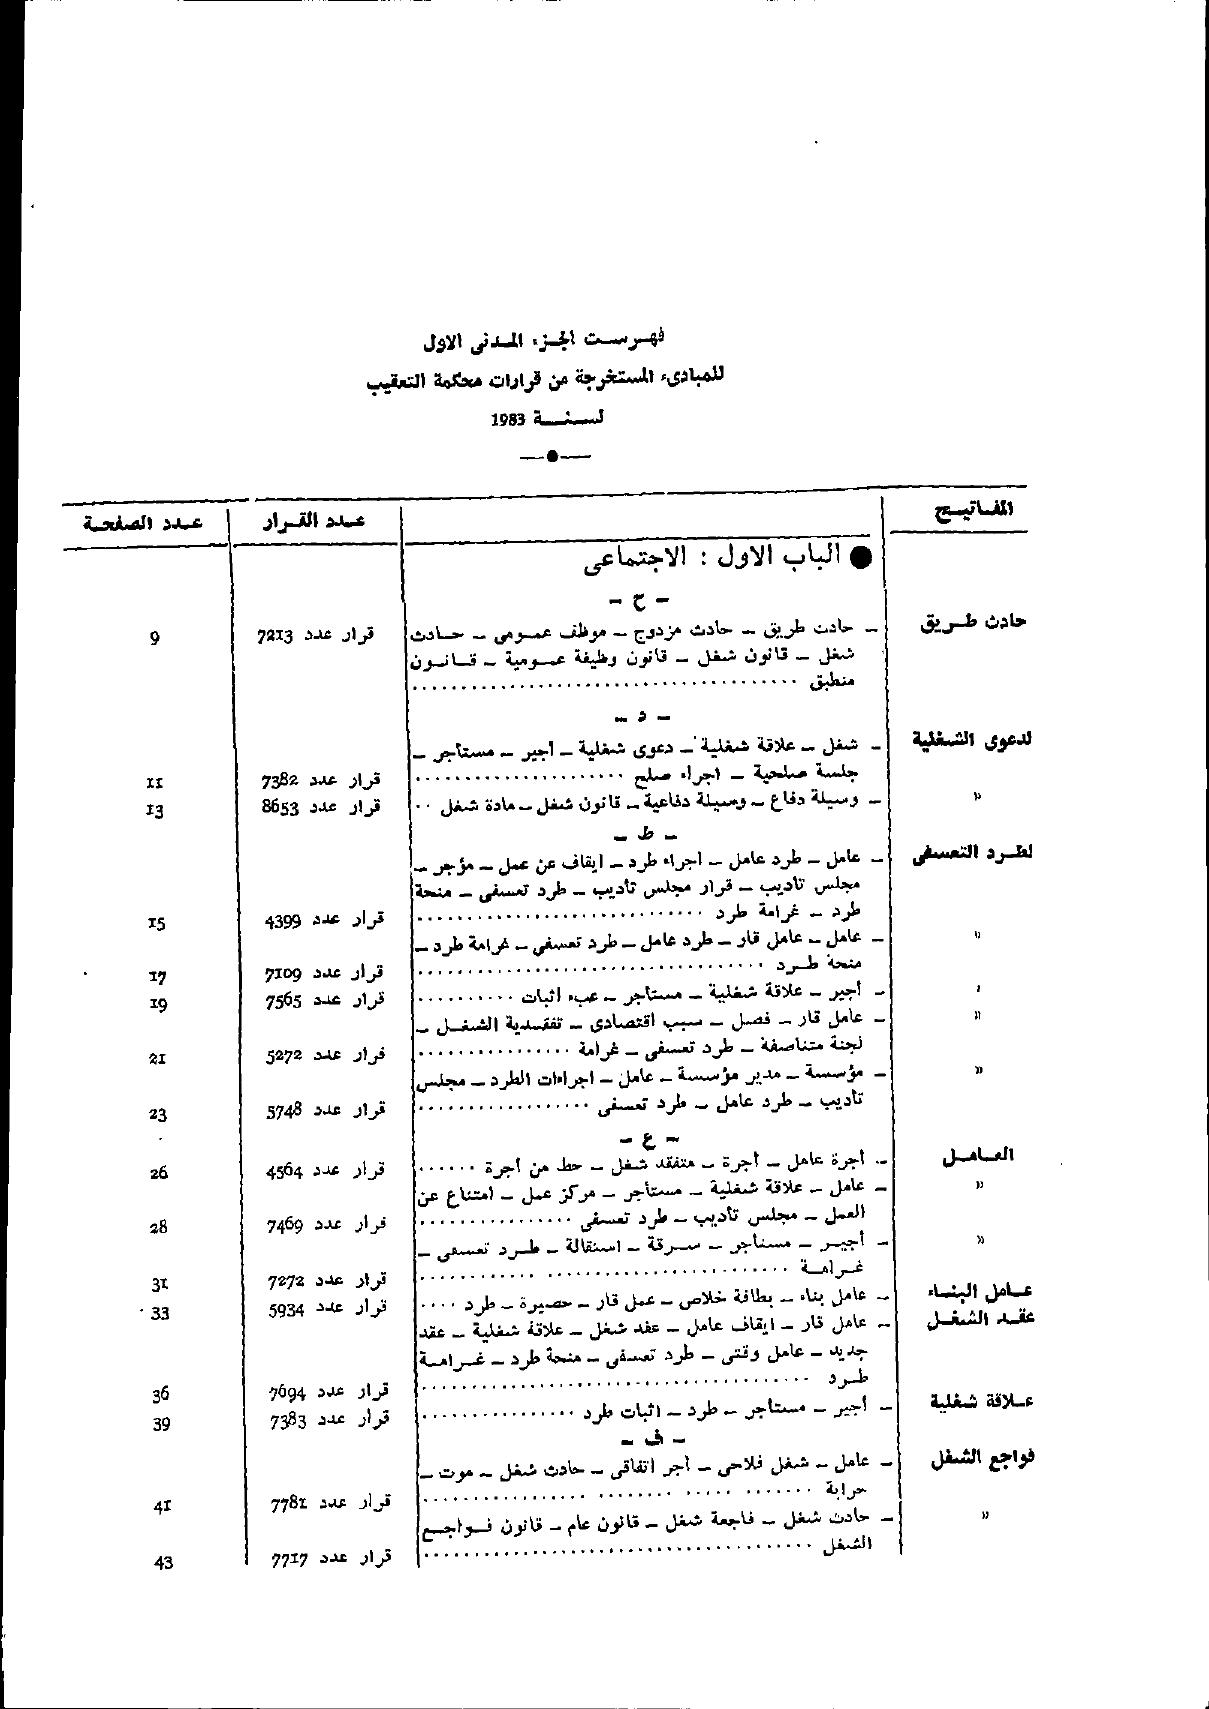 فهـرسـت الجـزء المـدنى الاول
للمبادىء المستخرجة من قرارات محكمة التعقيب
لسـنـــة 1983
المفـاتيـح عـدد القـرار عـدد الصفحـة
● الباب الاول : الاجتماعى
– ح –
حادث طـريق – حادث طريق – حادث مزدوج – موظف عمومى – حـادث قرار عدد 7213 9
شغل – قانون شغل – قانون وظيفة عمومية – قـانـون
منطبق ........................................
– د –
لدعوى الشـغلية – شغل – علاقة شغلية – دعوى شغلية – أجير – مستأجر –
جلسة صلحية – اجراء صلح ...................... قرار عدد 7382 11
« – وسيلة دفاع – وسيلة دفاعية – قانون شغل – مادة شغل .. قرار عدد 8653 13
– ط –
لطـرد التعسفى – عامل – طرد عامل – اجراء طرد – ايقاف عن عمل – مؤجر –
مجلس تأديب – قرار مجلس تأديب – طرد تعسفى – منحة
طرد – غرامة طرد .............................. قرار عدد 4399 15
« – عامل – عامل قار – طرد عامل – طرد تعسفى – غرامة طرد –
منحة طـرد .................................... قرار عدد 7109 17
« – أجير – علاقة شغلية – مستأجر – عبء اثبات .......... قرار عدد 7565 19
« – عامل قار – فصل – سبب اقتصادى – تفقـدية الشغـل –
لجنة متناصفة – طرد تعسفى – غرامة ................ قرار عدد 5272 21
« – مؤسسة – مدير مؤسسة – عامل – اجراءات الطرد – مجلس
تأديب – طرد عامل – طرد تعسفى .................. قرار عدد 5748 23
– ع –
العـامـل – أجرة عامل – أجرة – متفقد شغل – حط من أجرة ...... قرار عدد 4564 26
« – عامل – علاقة شغلية – مستأجر – مركز عمل – امتناع عن
العمل – مجلس تأديب – طرد تعسفى ................ قرار عدد 7469 28
« – أجيـر – مستأجر – سـرقة – استقالة – طـرد تعسفى –
غـرامـة ........................................ قرار عدد 7272 31
عـامل البنـاء – عامل بناء – بطاقة خلاص – عمل قار – حصيرة – طرد .... قرار عدد 5934 33
عقـد الشغـل – عامل قار – ايقاف عامل – عقد شغل – علاقة شغلية – عقد
جديد – عامل وقتى – طرد تعسفى – منحة طرد – غـرامـة
طـرد .......................................... قرار عدد 7694 36
عـلاقة شغلية – أجير – مستأجر – طرد – اثبات طرد ................ قرار عدد 7383 39
– ف –
فواجع الشغل – عامل – شغل فلاحى – أجر اتفاقى – حادث شغل – موت –
جراية .......................................... قرار عدد 7781 41
« – حادث شغل – فاجعة شغل – قانون عام – قانون فـواجـع
الشغل .......................................... قرار عدد 7717 43